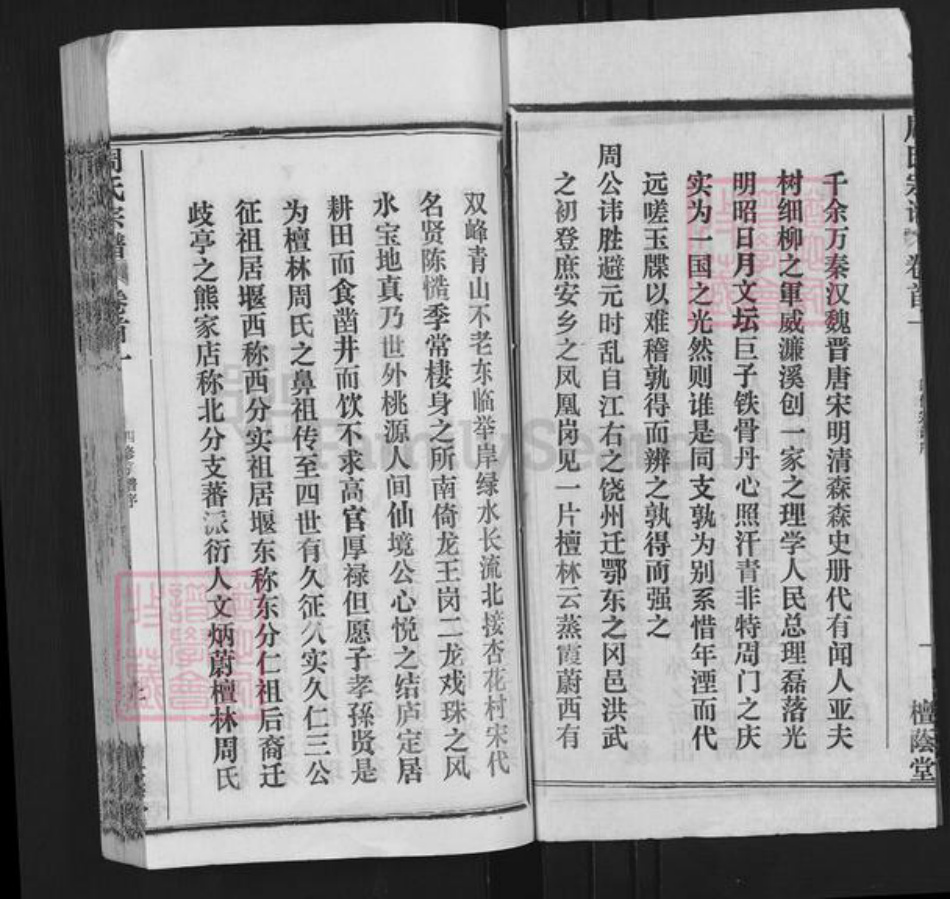 千余万秦汉魏晋唐宋明清森森史册代有闻人亚夫
树细柳之軍威濂溪创一家之理学人民总理磊落光
明昭日月文坛巨子铁骨丹心照汗青非特周门之庆
实为一国之光然则谁是同支孰为别系惜年湮而代
远嗟玉牒以难稽孰得而辨之孰得而强之
周公讳胜避元时乱自江右之饶州迁鄂东之冈邑洪武
之初登庶安乡之凤凰岗见一片檀林云蒸霞蔚西有
檀蔭堂
双峰青山不老东临举岸绿水长流北接杏花村宋代
名贤陈慥季常棲身之所南倚龙王岗二龙戏珠之风
水宝地真乃世外桃源人间仙境公心悦之结庐定居
耕田而食凿井而饮不求高官厚禄但愿子孝孫贤是
为檀林周氏之鼻祖传至四世有久征久实久仁三公
征祖居堰西称西分实祖居堰东称东分仁祖后裔迁
歧亭之熊家店称北分支蕃派衍人文炳蔚檀林周氏
周氏宗譜
四修宗譜序
FamilySearch